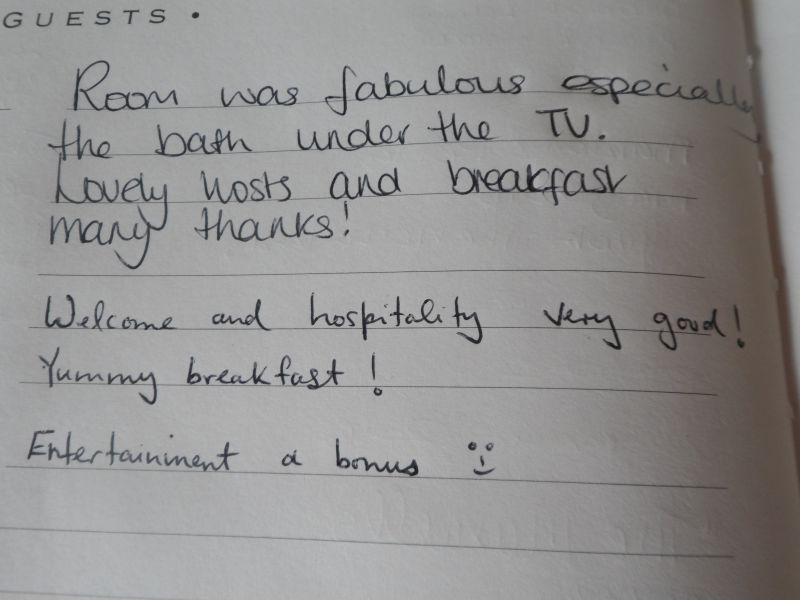 GUESTS •
Room was fabulous especially
the bath under the TV.
Lovely hosts and breakfast
many thanks!
Welcome and hospitality very good!
Yummy breakfast!
Entertainment a bonus